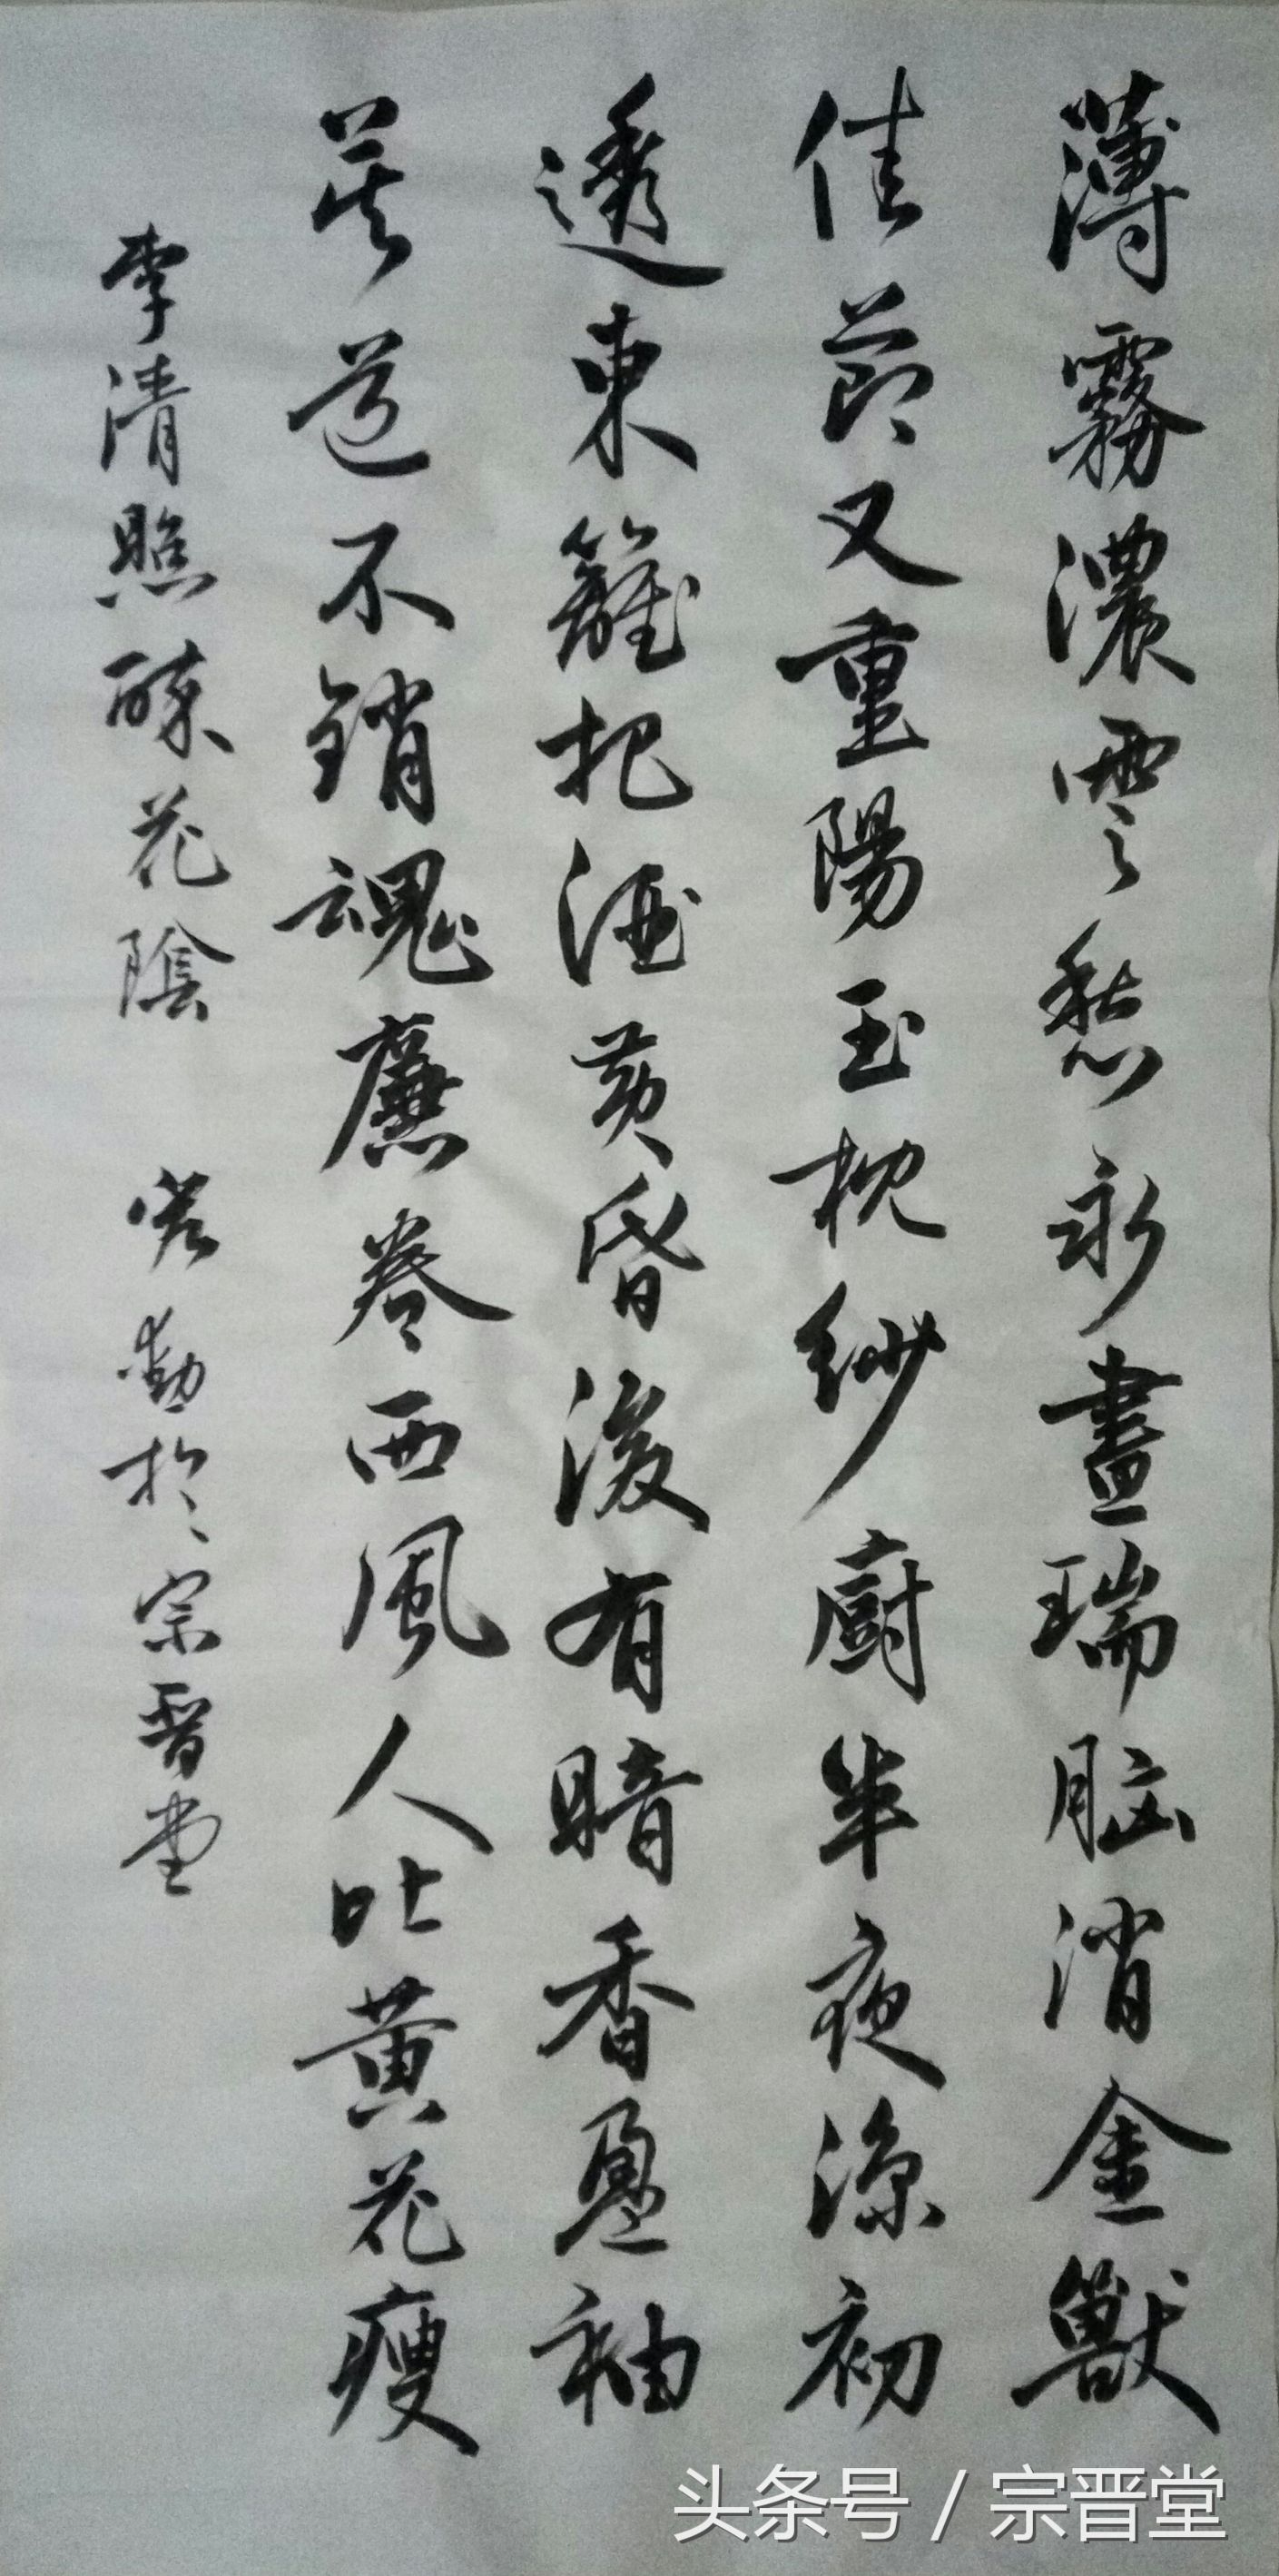 薄霧濃雲愁永晝瑞脑消金獸
佳節又重陽玉枕紗廚半夜涼初
透東籬把酒黃昏後有暗香盈袖
莫道不銷魂廉卷西風人比黃花瘦
李清照醉花陰 勤於宗晋堂
头条号 / 宗晋堂